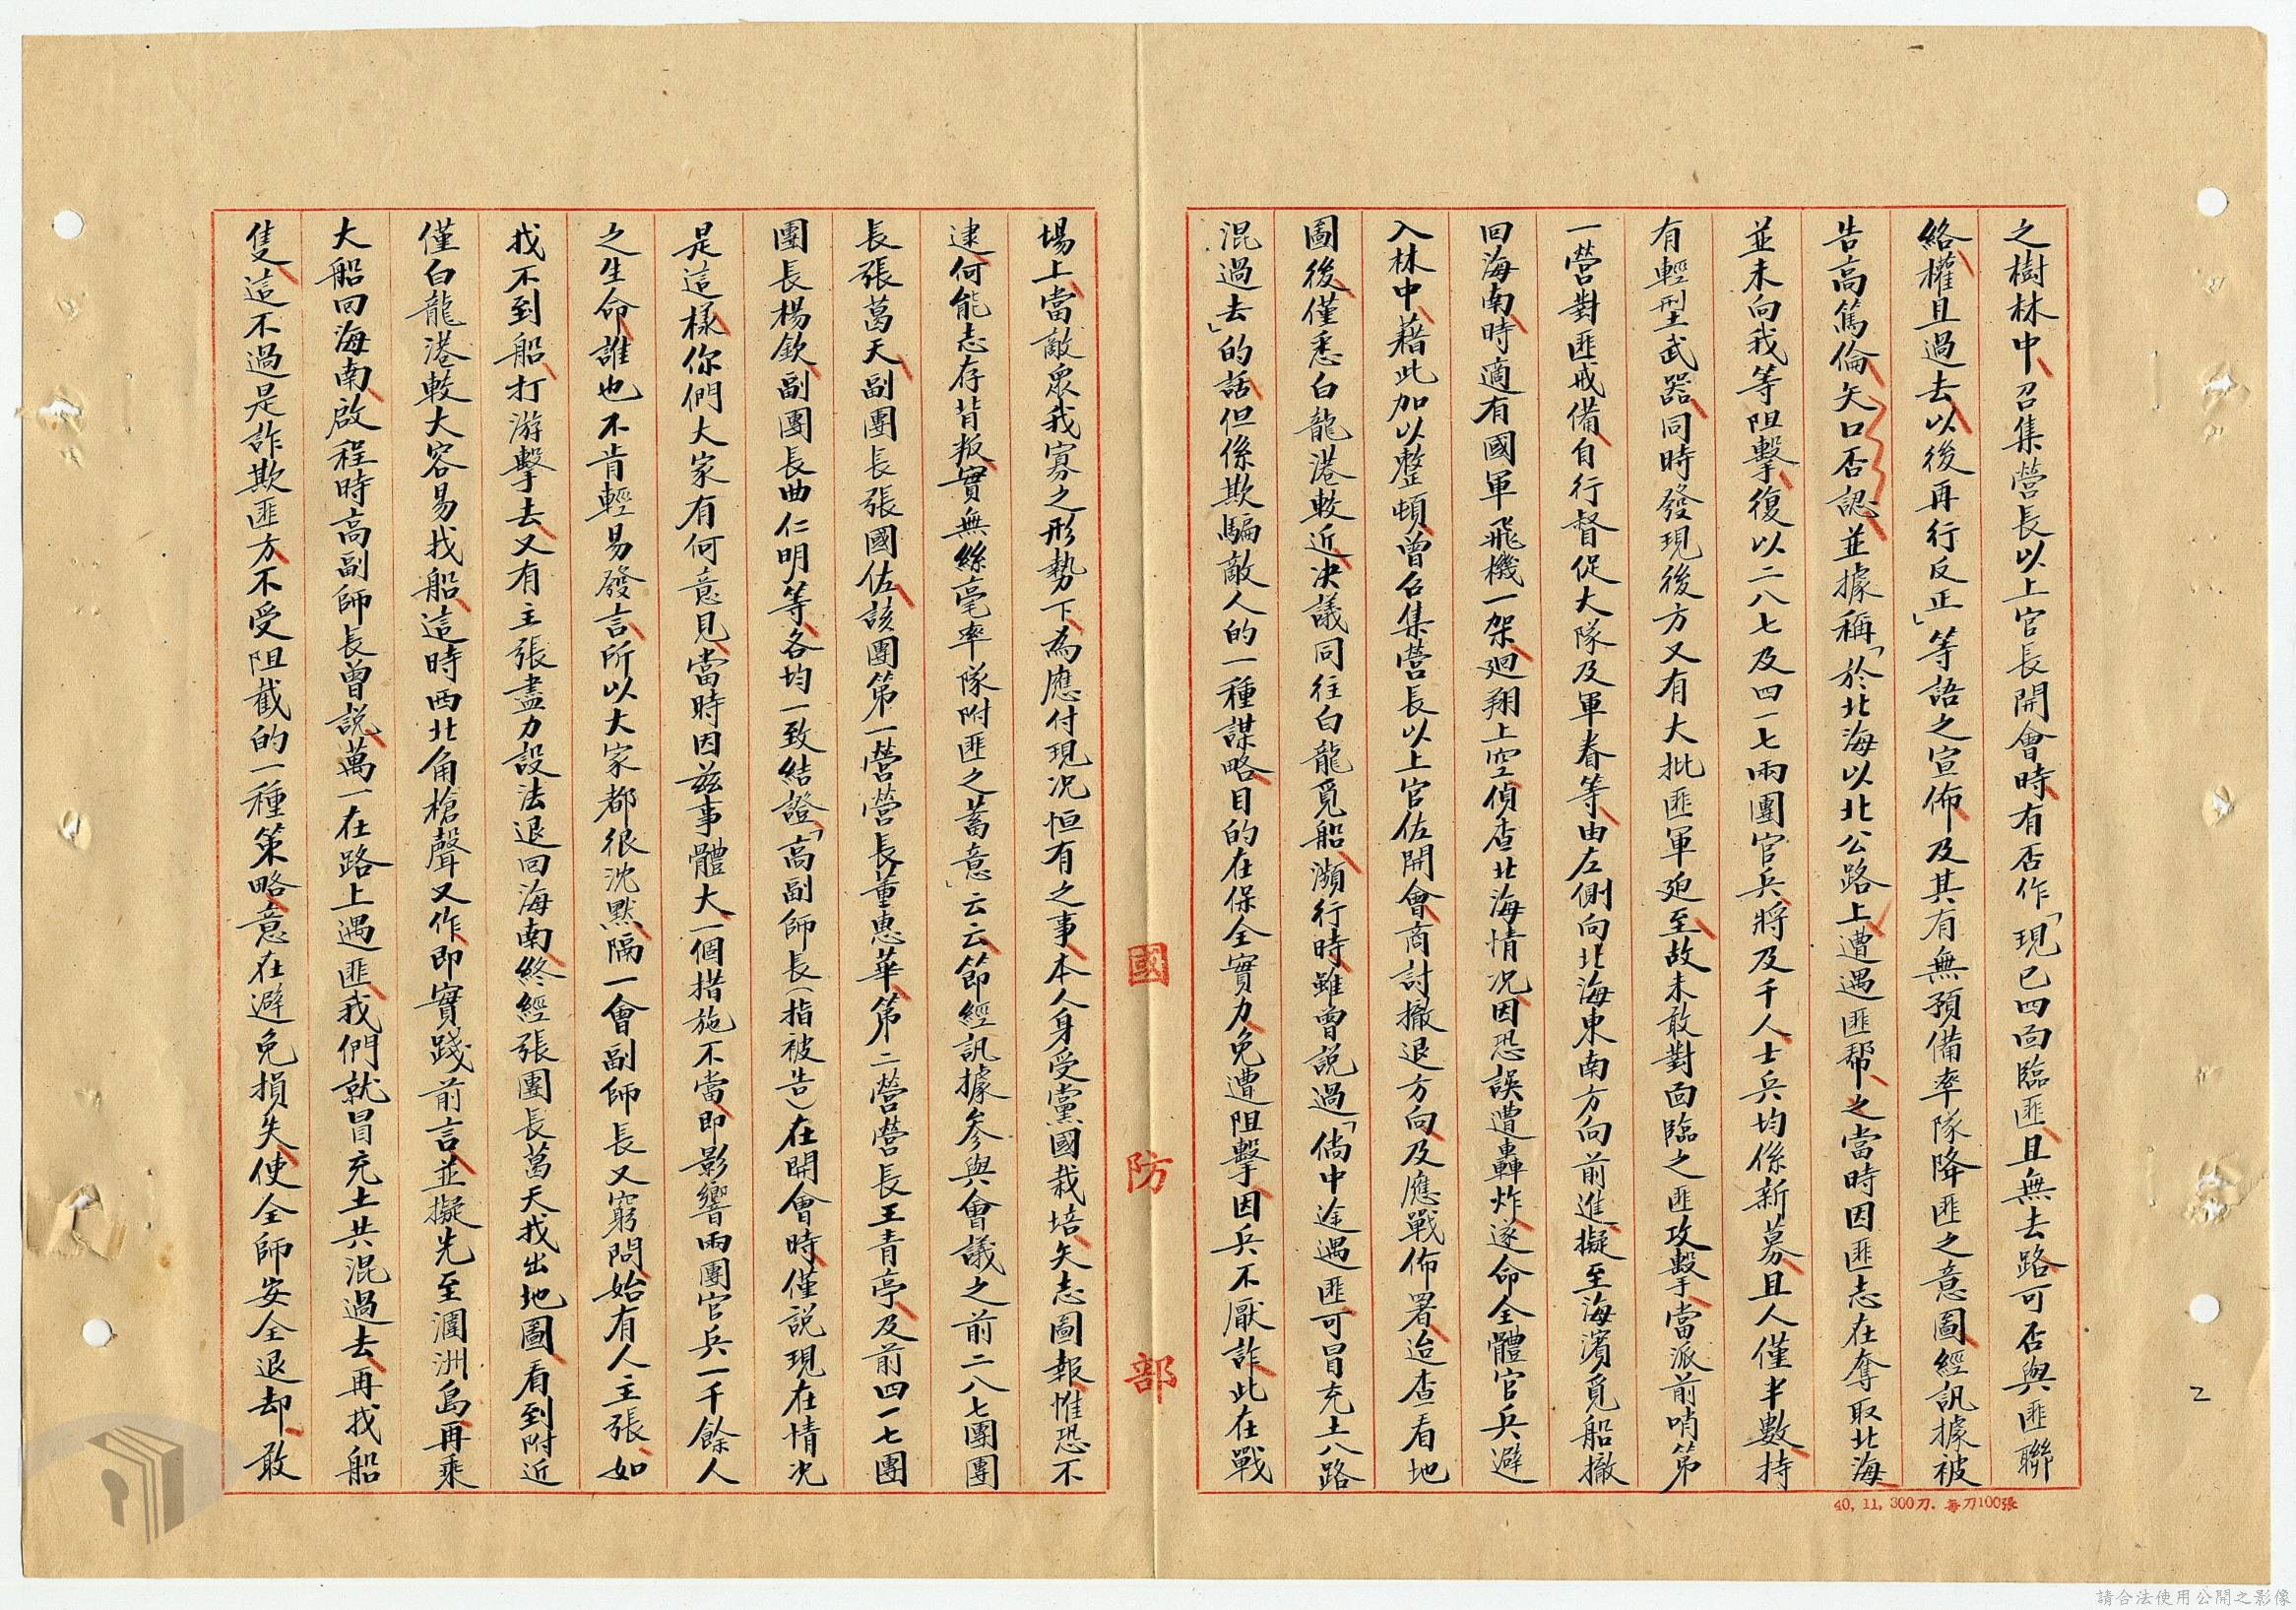 之樹林中召集營長以上官長開會時有否作「現已四面臨匪且無去路可否與匪聯
絡權且過去以後再行反正」等語之宣佈及其有無預備率隊降匪之意圖經訊據被
告高篤倫矢口否認並據稱「於北海以北公路上遭遇匪幫之當時因匪志在奪取北海
並未向我等阻擊復以二八七及四一七兩團官兵將及千人士兵均係新募且人僅半數持
有輕型武器同時發現後方又有大批匪軍迫至故未敢對面臨之匪攻擊當派前哨第
一營對匪戒備自行督促大隊及軍眷等由左側向北海東南方向前進擬至海濱覓船撤
回海南時適有國軍飛機一架迴翔上空偵查北海情況因恐誤遭轟炸遂命全體官兵避
入林中藉此加以整頓曾召集營長以上官佐開會商討撤退方向及應戰佈署迨查看地
圖後僅悉白龍港較近決議同往白龍覓船瀕行時雖曾說過「倘中途遇匪可冒充土八路
混過去」的話但係欺騙敵人的一種謀略目的在保全實力免遭阻擊因兵不厭詐此在戰
國防部
場上當敵眾我寡之形勢下為應付現況恒有之事本人身受黨國栽培矢志圖報惟恐不
逮何能志存背叛實無絲毫率隊附匪之蓄意」云云節經訊據參與會議之前二八七團團
長張葛天副團長張國佐該團第一營營長董惠華第二營營長王青亭及前四一七團
團長楊欽副團長曲仁明等各均一致結證「高副師長(指被告)在開會時僅說現在情況
是這樣你們大家有何意見當時因茲事體大一個措施不當即影響兩團官兵一千餘人
之生命誰也不肯輕易發言所以大家都很沈默隔一會副師長又窮問始有人主張如
找不到船打游擊去又有主張盡力設法退回海南終經張團長葛天找出地圖看到附近
僅白龍港較大容易找船這時西北角槍聲又作即實踐前言並擬先至潿洲島再乘
大船回海南啟程時高副師長曾說萬一在路上遇匪我們就冒充土共混過去再找船
隻這不過是詐欺匪方不受阻截的一種策略意在避免損失使全師安全退却敢
40, 11, 300刀. 每刀100張
2
請合法使用公開之影像